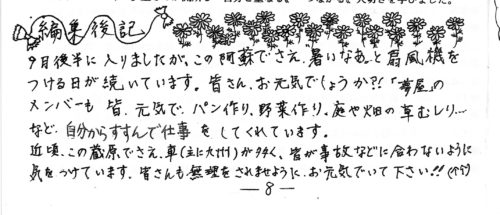 編集後記
9月後半に入りましたが、この阿蘇でさえ、暑いなあと扇風機を
つける日が続いています。皆さん、お元気でしょうか?!「夢屋」の
メンバーも皆、元気で、パン作り、野菜作り、庭や畑の草むしり…
など、自分からすすんで仕事をしてくれています。
近頃、この蔵原でさえ、車(主に大型)が多く、皆が事故などに合わないように
気をつけています。皆さんも無理をされませぬように、お元気でいて下さい!!
—8—